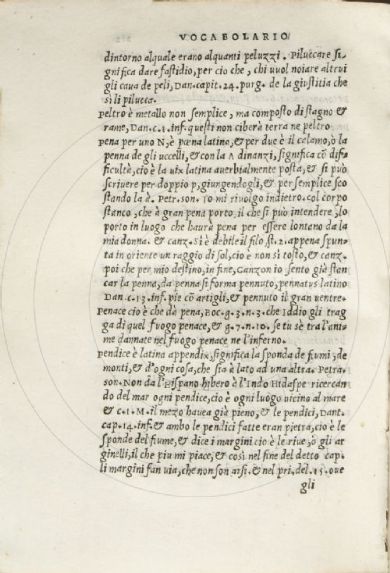 VOCABOLARIO
dintorno alquale erano alquanti peluzzi. Piluccare si-
gnifica dare fastidio, per cio che, chi vuol noiare altrui
gli caua de peli, Dan. capit. 24. purg. de la giustitia che
si li pilucca.
Peltro è metallo non semplice, ma composto di stagno &
rame, Dan. c. 1. inf. questi non ciberà terra ne peltro
Pena per uno N, è pœna latino, & per due è il calamo, ò la
penna de gli uccelli, & con la A dinanzi, significa cō diffi
ficultà, cio è la uix latina auerbialmente posta, & si può
scriuere per doppio p, giungendogli, & per semplice sco
stando la à. Petr. son. 10 mi riuolgo indietro. col corpo
stanco, che à gran pena porto, il che si può intendere, lo
porto in luogo che haurà pena per essere lontano da la
mia donna. & canz. Si è debile il filo st. 2. appena spun-
ta in oriente un raggio di sol, cio è non si tosto, & canz.
poi che per mio destino, in fine, Canzon io sento già stan
car la penna, da penna si forma pennuto, pennatus latino
Dan. c. 13. inf. pie cō artigli, & pennuto il gran uentre.
Penace cio è che dà pena, Boc. g. 3. n. 3. che Iddio gli trag
ga di quel fuogo penace, & g. 7. n. 10. se tu sè tra l'ani
me dannate nel fuogo penace ne l'inferno.
Pendice è latina appendix, significa la sponda de fiumi, de
monti, & d'ogni cosa, che sia à lato ad una altra. Petra.
son. Non da l'Hispano hibero à l'Indo Hidaspe ricercan
do del mar ogni pendice, cio è ogni luogo uicino al mare
& C. I. M. il mezo hauea già pieno, & le pendici, Dant.
cap. 14. inf. & ambo le pendici fatte eran pietra, cio è le
sponde del fiume, & dice i margini cio è le riue, ò gli ar
ginelli, il che piu mi piace, & così nel fine del detto cap.
li margini fan uia, che non son arsi. & nel pri. del. 15. oue
gli